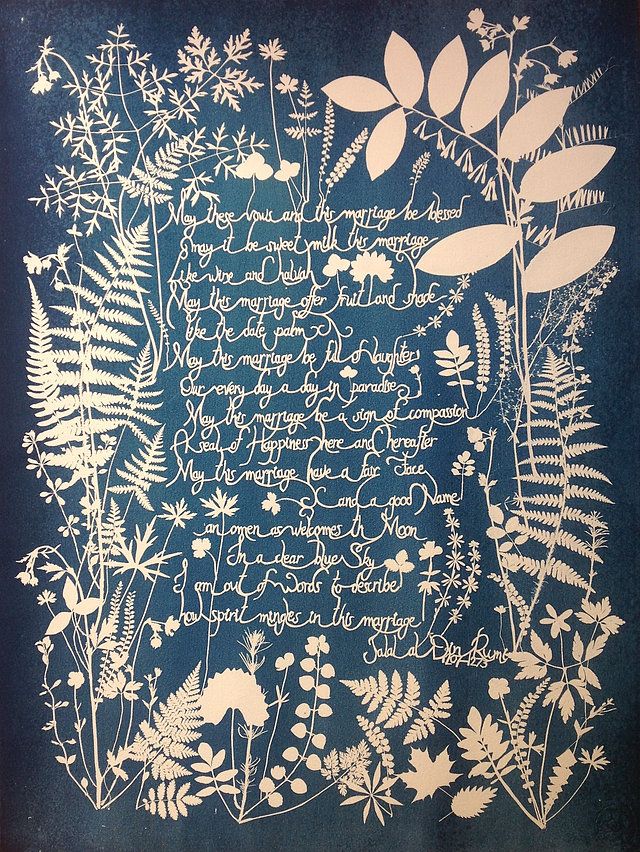 May these vows and this marriage be blessed
may it be sweet milk this marriage
like wine and halvah
May this marriage offer fruit and shade
like the date palm
May this marriage be full of laughter
Our every day a day in paradise
May this marriage be a sign of compassion
A seal of Happiness here and hereafter
May this marriage have a fair face
and a good Name
an omen as welcomes th Moon
In a clear blue Sky
I am out of Words to describe
how spirit mingles in this marriage
Jalal al Din Rumi
1207 1273